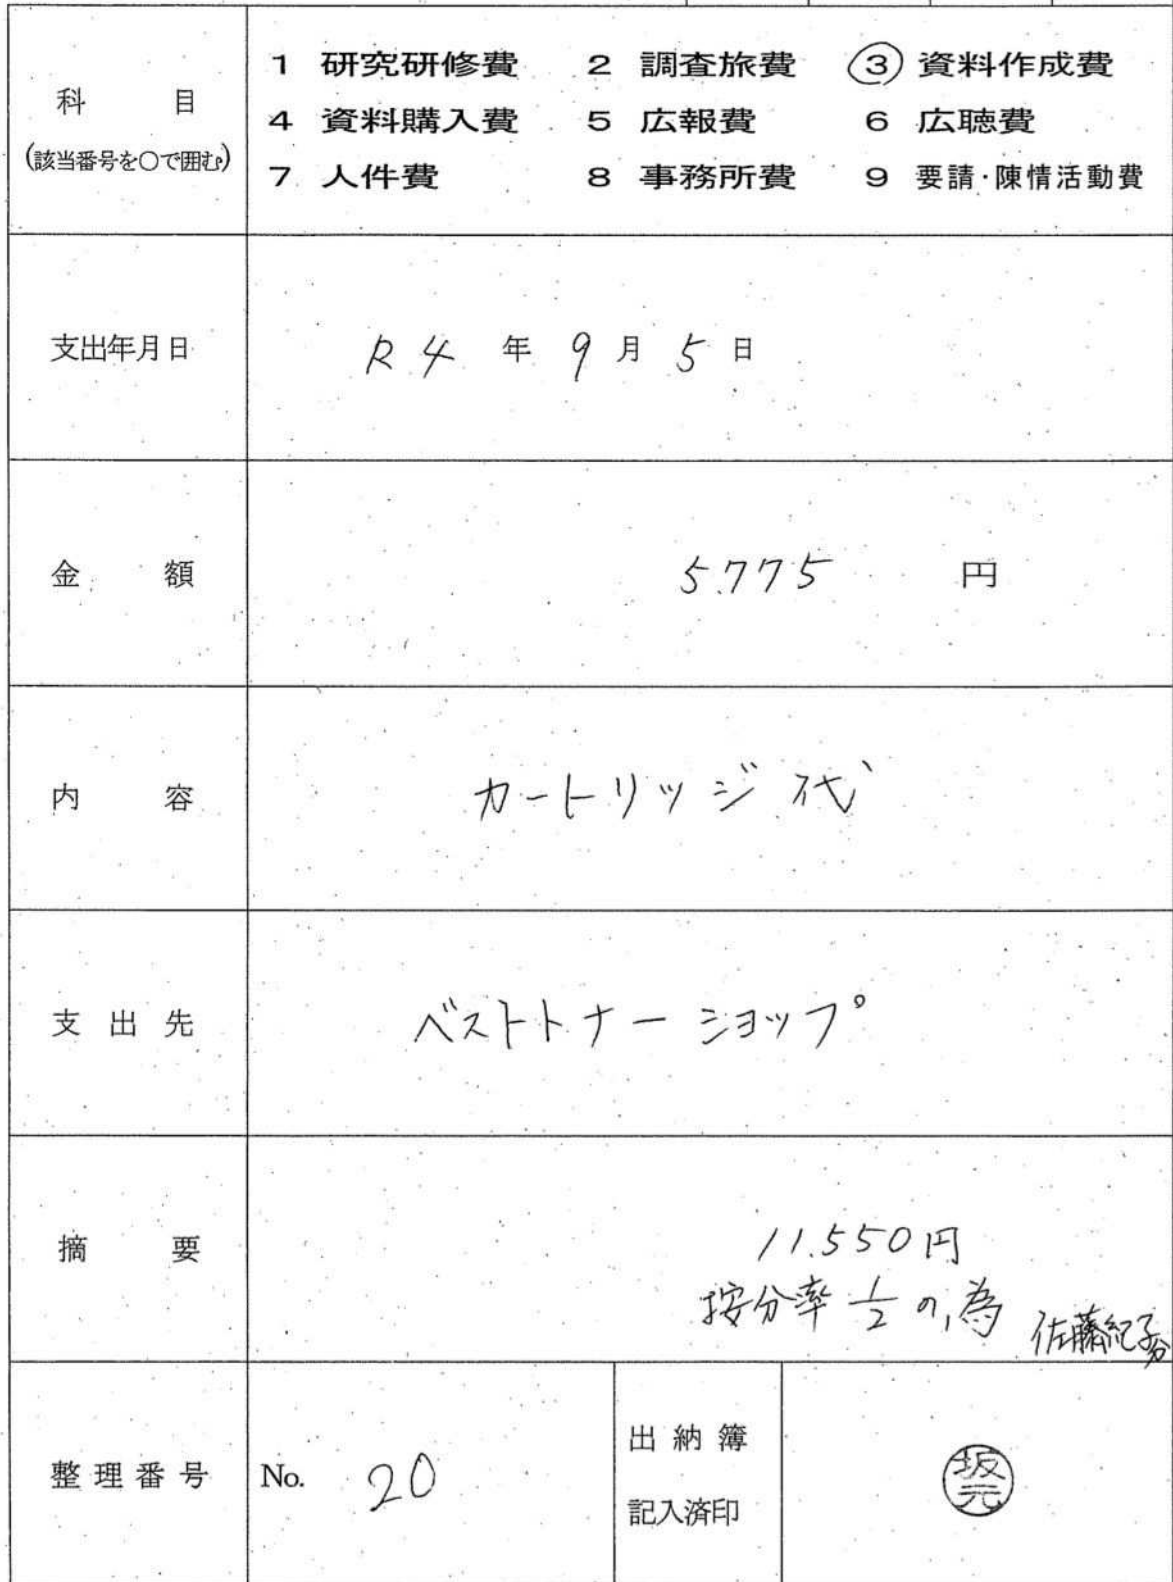 1 研究研修費 2 調査旅費 ③ 資料作成費
科 目
4 資料購入費 5 広報費 6 広聴費
(該当番号を○で囲む)
7 人件費 8 事務所費 9 要請・陳情活動費
支出年月日 R4 年 9 月 5 日
金 額 5.775 円
内 容 カートリッジ代
支 出 先 ベストトナーショップ
摘 要 11.550円
按分率 1/2 の為 佐藤紀子分
整 理 番 号 No. 20 出 納 簿
記入済印
坂元